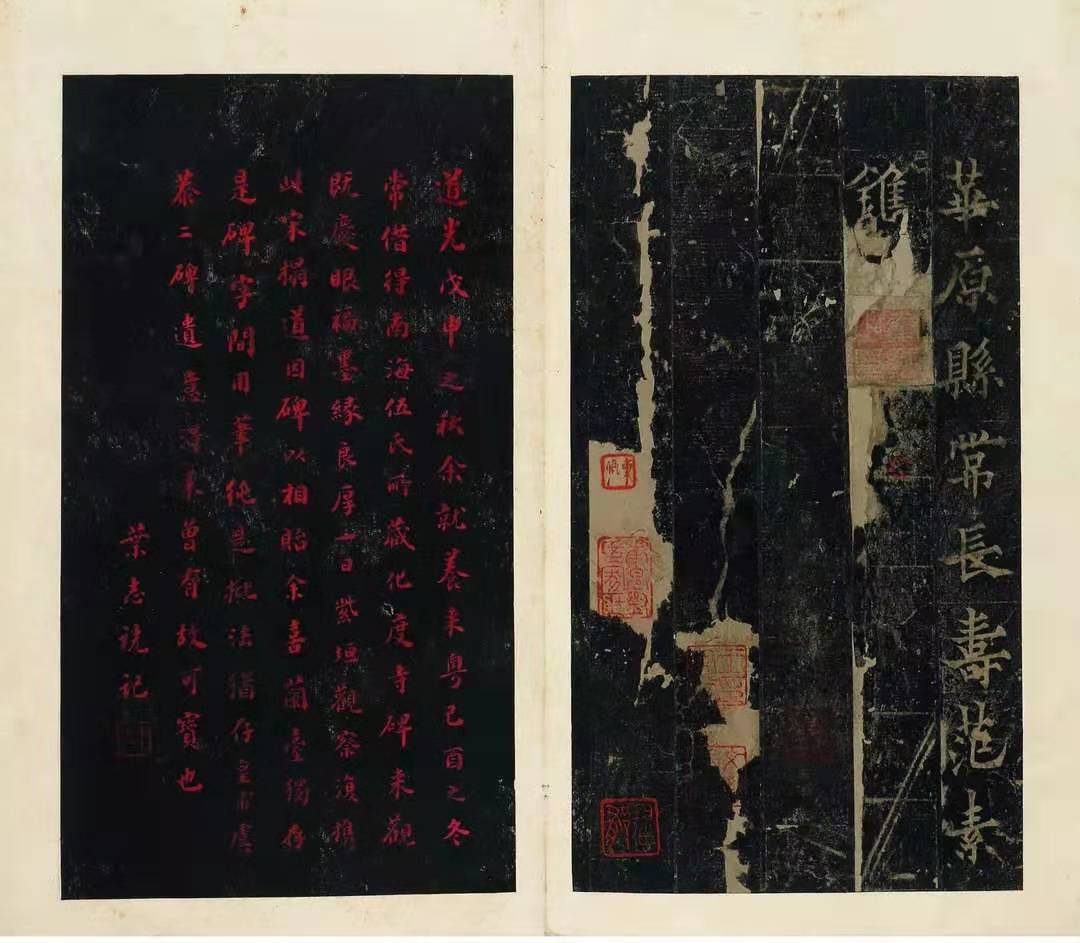 華原縣常長壽范素
鐫
道光戊申之秋余就養來粵己酉之冬
常借得南海伍氏所藏化度寺碑来觀
既慶眼福墨緣良厚一日紫垣觀察復携
此宋搨道因碑以相貽余喜蘭臺獨存
是碑字間用筆純是批法猶存
恭二碑遺意
曾有故可寶也
葉志詵記